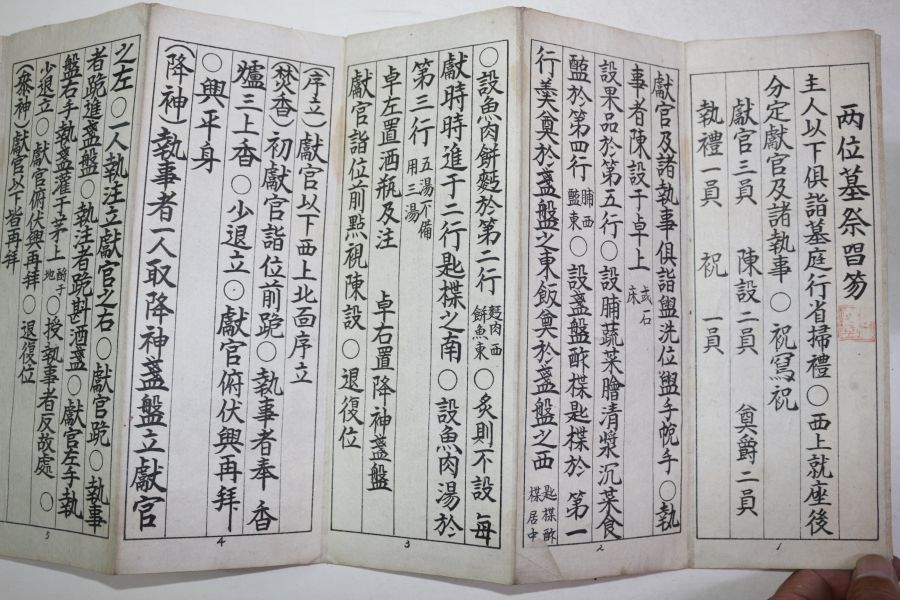 两位墓祭習笏
主人以下俱詣墓庭行省掃禮○西上就座後
分定獻官及諸執事○祝寫祝
獻官三員 陳設二員 奠爵二員
執禮一員 祝一員
1
獻官及諸執事俱詣盥洗位盥手帨手○執
事者陳設于卓上 或石床
設果品於第五行○設脯蔬菜膾清漿沉菜食
醢於第四行 脯西醢東 ○設盞盤酢楪匙楪於第一
行羹奠於盞盤之東飯奠於盞盤之西 匙楪酢楪居中
2
○設魚肉餠麪於第二行 麪肉西餠魚東 ○炙則不設每
獻時時進于二行匙楪之南○設魚肉湯於
第三行 五湯不備用三湯
卓左置酒瓶及注 卓右置降神盞盤
獻官詣位前點視陳設○退復位
3
(序立)獻官以下西上北面序立
(焚香)初獻官詣位前跪○執事者奉香
爐三上香○少退立○獻官俯伏興再拜
○興平身
(降神)執事者一人取降神盞盤立獻官
4
之左○一人執注立獻官之右○獻官跪○執事
者跪進盞盤○執注者跪斟酒盞○獻官左手執
盤右手執盞灌于茅上 酹于地 ○授執事者反故處○
少退立○獻官俯伏興再拜○退復位
(參神)獻官以下皆再拜
5